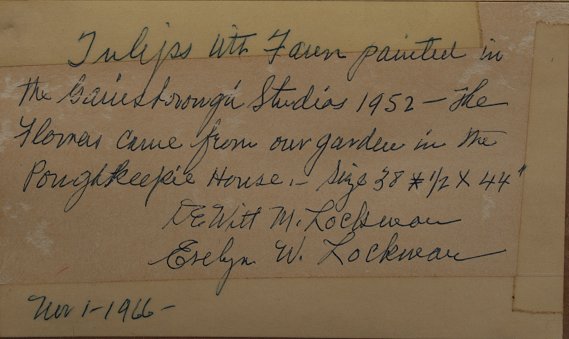 Tulips With Fawn painted in
the Gainsborough Studios 1952 — The
Flowers came from our garden in the
Poughkeepsie House. — Size 38 1/2 X 44"
DeWitt M. Lockman
Evelyn W. Lockman
Nov 1 - 1966 -